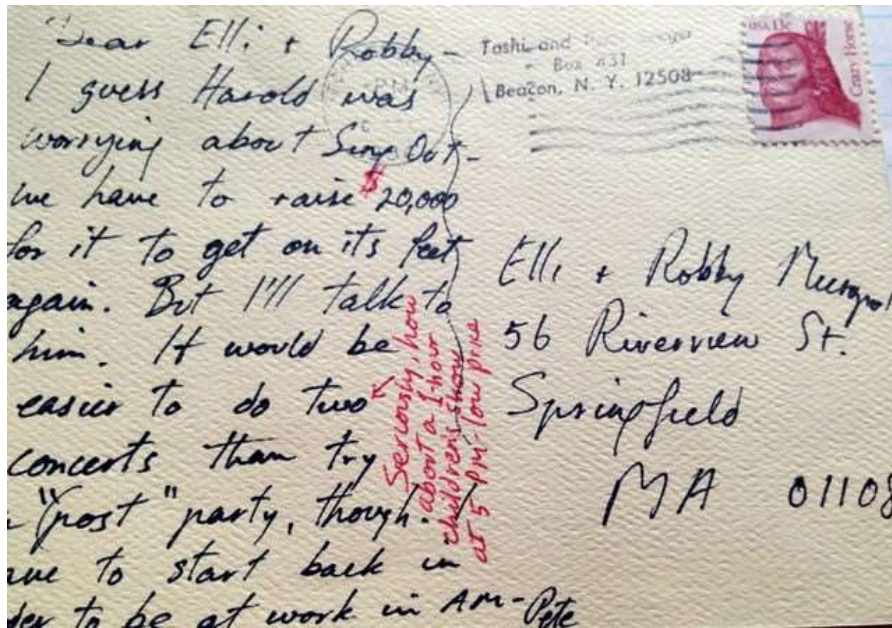 Dear Elli + Robby -
I guess Harold was
worrying about Sing Out -
we have to raise $20,000
for it to get on its feet
again. But I'll talk to
him. It would be
easier to do two
concerts than try
"post" party, though. I
have to start back in
order to be at work in AM -
Pete
Seriously, how
about a 1 hour
children's show
at 5 PM - low price
Toshi and
Box 431
Beacon, N. Y. 12508
USA 13c
Crazy Horse
PM
Elli + Robby
56 Riverview St.
Springfield
MA 01108